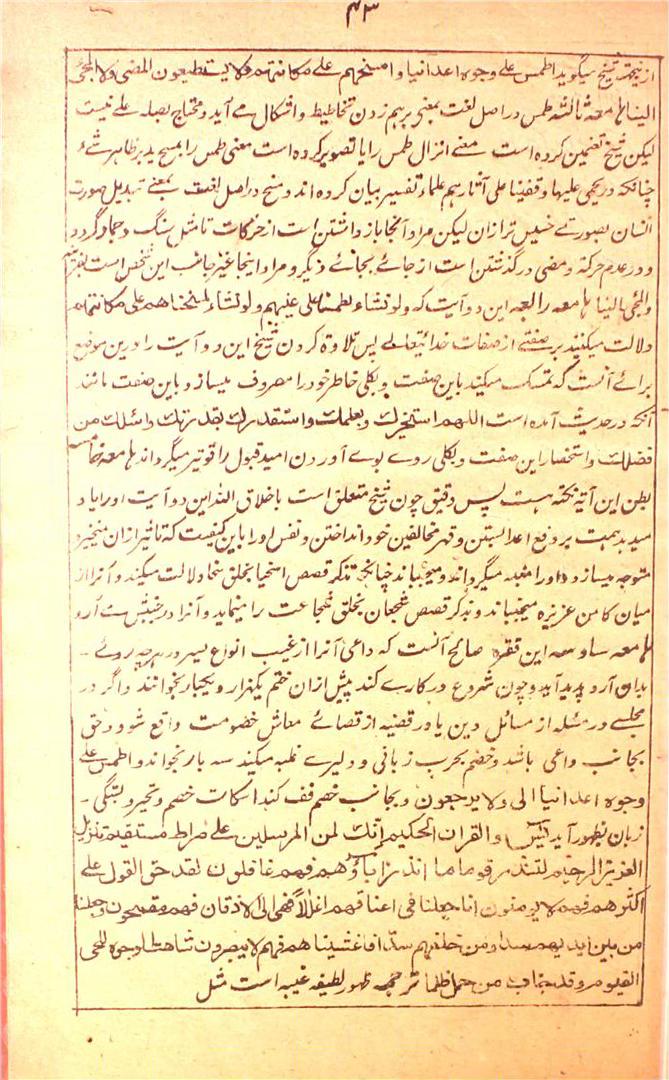 ۴۳
از ینجهت شیخ میگوید اطمس علی وجوه اعدائنا وامسخهم علی مکانتهم فلا یستطیعون المضی ولا المجیٔ
الینا لمعه ثالثه طمس در اصل لغت بمعنی برهم زدن تخاطیط و اشکال می آید و محتاج بصله علی نیست
لیکن شیخ تضمین کرده است معنے انزال طمس را یا تصویر کرده است معنی طمس را بمسح ید بر ظاهر شےء
چنانکه در علیها وقفینا علی آثارهم علماء تفسیر بیان کرده اند و مسخ در اصل لغت بمعنے تبدیل صورت
انسان بصورتے خسیس تر ازان لیکن مراد آنجا باز داشتن است از حرکات تا مثل سنگ و جماد گردد
و در عدم حرکة و مضی در گذشتن است از جائے بجائے دیگر و مراد اینجا غیر جانب این شخص است بقرینه
والمجیٔ الینا لمعه رابعه این دو آیت که ولو نشاء لطمسنا علی اعینهم ولو نشاء لمسخناهم علی مکانتهم
دلالت میکنند بر صفتے از صفات خدائیتعالے پس تلاوة کردن شیخ این دو آیت را درین موضع
برائے آنست که تمسک میکند باین صفت و بکلی خاطر خود را مصروف میسازد باین صفت مانند
آنکه در حدیث آمده است اللهم استخیرك بعلمك واستقدرك بقدرتك واسئلك من
فضلك و استحضار این صفت و بکلی روے بوے آوردن امید قبول را قوی تر میگرداند لمعه خامسه
بطن این آیة نکته هست بس دقیق چون شیخ متعلق است باخلاق الله این دو آیت اورا یاد
میدهد همت بر دفع اعدا بستن و قهر مخالفین خود انداختن و نفس اورا باین کیفیت که تاثیر ازان میخیزد
متوجه میسازد و اورا متنبه میگرداند و میجنباند چنانچه تذکر قصص اسخیا بخلق سخا دلالت میکند و آنرا از
میان کامن عزیزه میجنباند و تذکر قصص شجعان بخلق شجاعت را مینماید و آنرا در جنبش می آرد
لمعه سادسه این فقره صالح آنست که داعی آنرا از غیب انواع بسر در هرچه روے
بدان آرد پدید آید و چون شروع در کارے کند پیش ازان ختم یکهزار و یکبار بخواند و اگر در
مجلسے در مسئله از مسائل دین یا در قضیه از قضائے معاش خصومت واقع شود و حق
بجانب داعی باشد و خصم بچرب زبانی و دلیرے غلبه میکند سه بار بخواند و اطمس علی
وجوه اعدائنا الی ولا یرجعون و بجانب خصم تف کند اسکات خصم و تحیر و بستگی
زبان بظهور آید یٰس والقران الحکیم انك لمن المرسلین علی صراط مستقیم تنزیل
العزیز الرحیم لتنذر قوما ما انذر اباؤهم فهم غافلون لقد حق القول علی
اکثرهم فهم لا یومنون انا جعلنا فی اعناقهم اغلالا فهی الی الاذقان فهم مقمحون وجعلنا
من بین ایدیهم سدا ومن خلفهم سدا فاغشیناهم فهم لا یبصرون شاهت الوجوه للحی
القیوم وقد خاب من حمل ظلما ترجمه ظهور لطیفه غیبه است مثل